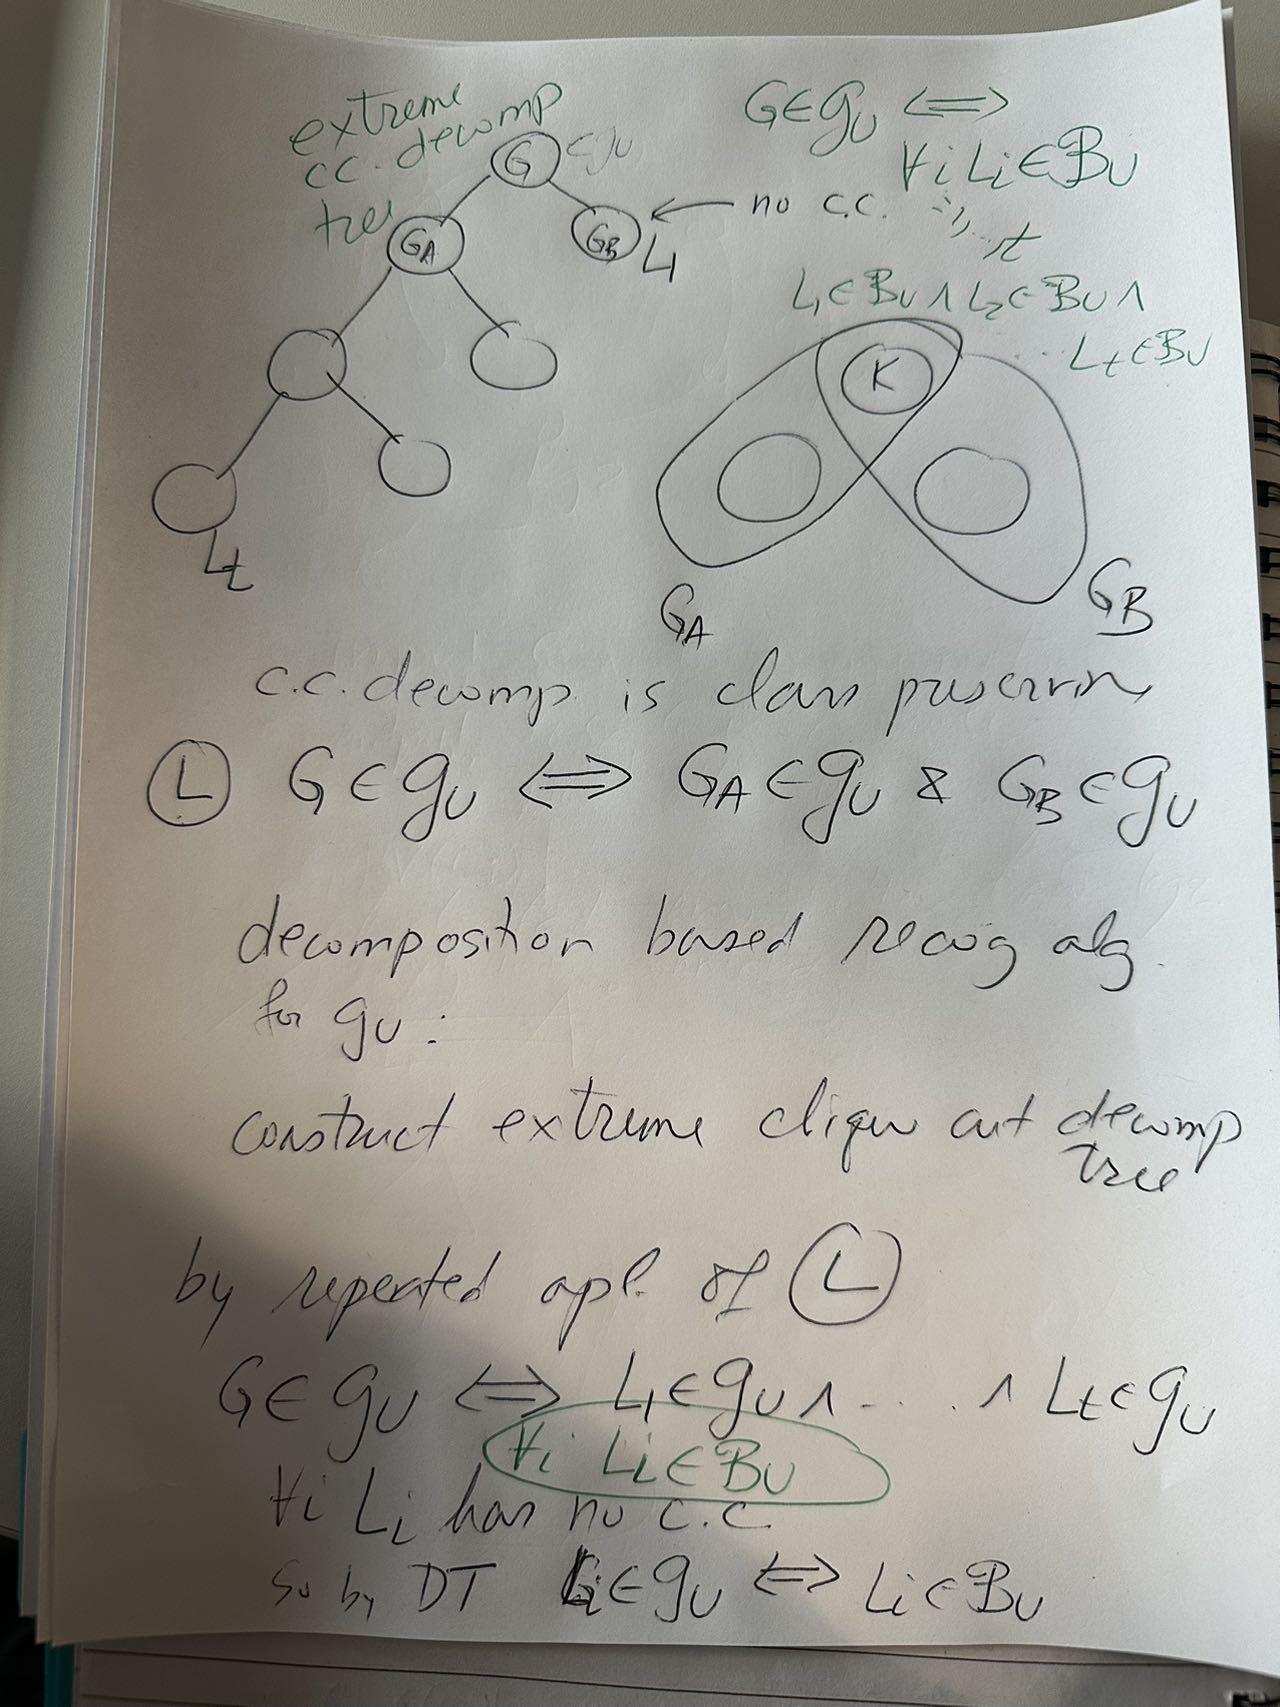 extreme
c.c. decomp
tree
G ∈ 𝒢U
GA
GB L1
← no c.c.
Lt
G ∈ 𝒢U ⟺
∀i Li ∈ ℬU
L1 ∈ ℬU ∧ L2 ∈ ℬU ∧
... Lt ∈ ℬU
K
GA
GB
c.c. decomp is class preserving
(L) G ∈ 𝒢U ⟺ GA ∈ 𝒢U & GB ∈ 𝒢U
decomposition based recog alg.
for 𝒢U :
construct extreme clique cut decomp
tree
by repeated apl. of (L)
G ∈ 𝒢U ⟺ L1 ∈ 𝒢U ∧ .... ∧ Lt ∈ 𝒢U
∀i Li ∈ ℬU
∀i Li has no c.c.
so by DT Li ∈ 𝒢U ⟺ Li ∈ ℬU